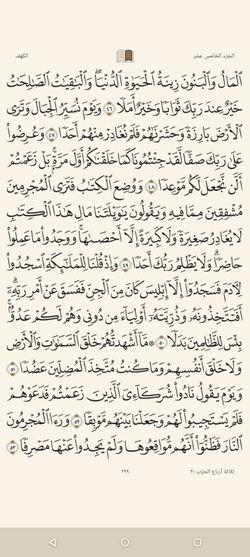 الجزء الخامس عشر
الكهف
ٱلْمَالُ وَٱلْبَنُونَ زِينَةُ ٱلْحَيَوٰةِ ٱلدُّنْيَا ۖ وَٱلْبَٰقِيَٰتُ ٱلصَّٰلِحَٰتُ
خَيْرٌ عِندَ رَبِّكَ ثَوَابًا وَخَيْرٌ أَمَلًا ٤٦ وَيَوْمَ نُسَيِّرُ ٱلْجِبَالَ وَتَرَى
ٱلْأَرْضَ بَارِزَةً وَحَشَرْنَٰهُمْ فَلَمْ نُغَادِرْ مِنْهُمْ أَحَدًا ٤٧ وَعُرِضُوا۟
عَلَىٰ رَبِّكَ صَفًّا لَّقَدْ جِئْتُمُونَا كَمَا خَلَقْنَٰكُمْ أَوَّلَ مَرَّةٍۭ ۚ بَلْ زَعَمْتُمْ
أَلَّن نَّجْعَلَ لَكُم مَّوْعِدًا ٤٨ وَوُضِعَ ٱلْكِتَٰبُ فَتَرَى ٱلْمُجْرِمِينَ
مُشْفِقِينَ مِمَّا فِيهِ وَيَقُولُونَ يَٰوَيْلَتَنَا مَالِ هَٰذَا ٱلْكِتَٰبِ
لَا يُغَادِرُ صَغِيرَةً وَلَا كَبِيرَةً إِلَّآ أَحْصَىٰهَا ۚ وَوَجَدُوا۟ مَا عَمِلُوا۟
حَاضِرًا ۗ وَلَا يَظْلِمُ رَبُّكَ أَحَدًا ٤٩ وَإِذْ قُلْنَا لِلْمَلَٰٓئِكَةِ ٱسْجُدُوا۟
لِءَادَمَ فَسَجَدُوٓا۟ إِلَّآ إِبْلِيسَ كَانَ مِنَ ٱلْجِنِّ فَفَسَقَ عَنْ أَمْرِ رَبِّهِۦٓ ۗ
أَفَتَتَّخِذُونَهُۥ وَذُرِّيَّتَهُۥٓ أَوْلِيَآءَ مِن دُونِى وَهُمْ لَكُمْ عَدُوٌّۢ ۚ
بِئْسَ لِلظَّٰلِمِينَ بَدَلًا ٥٠ ۞ مَّآ أَشْهَدتُّهُمْ خَلْقَ ٱلسَّمَٰوَٰتِ وَٱلْأَرْضِ
وَلَا خَلْقَ أَنفُسِهِمْ وَمَا كُنتُ مُتَّخِذَ ٱلْمُضِلِّينَ عَضُدًا ٥١
وَيَوْمَ يَقُولُ نَادُوا۟ شُرَكَآءِىَ ٱلَّذِينَ زَعَمْتُمْ فَدَعَوْهُمْ
فَلَمْ يَسْتَجِيبُوا۟ لَهُمْ وَجَعَلْنَا بَيْنَهُم مَّوْبِقًا ٥٢ وَرَءَا ٱلْمُجْرِمُونَ
ٱلنَّارَ فَظَنُّوٓا۟ أَنَّهُم مُّوَاقِعُوهَا وَلَمْ يَجِدُوا۟ عَنْهَا مَصْرِفًا ٥٣
ثلاثة أرباع الحزب ٣٠
٢٩٩